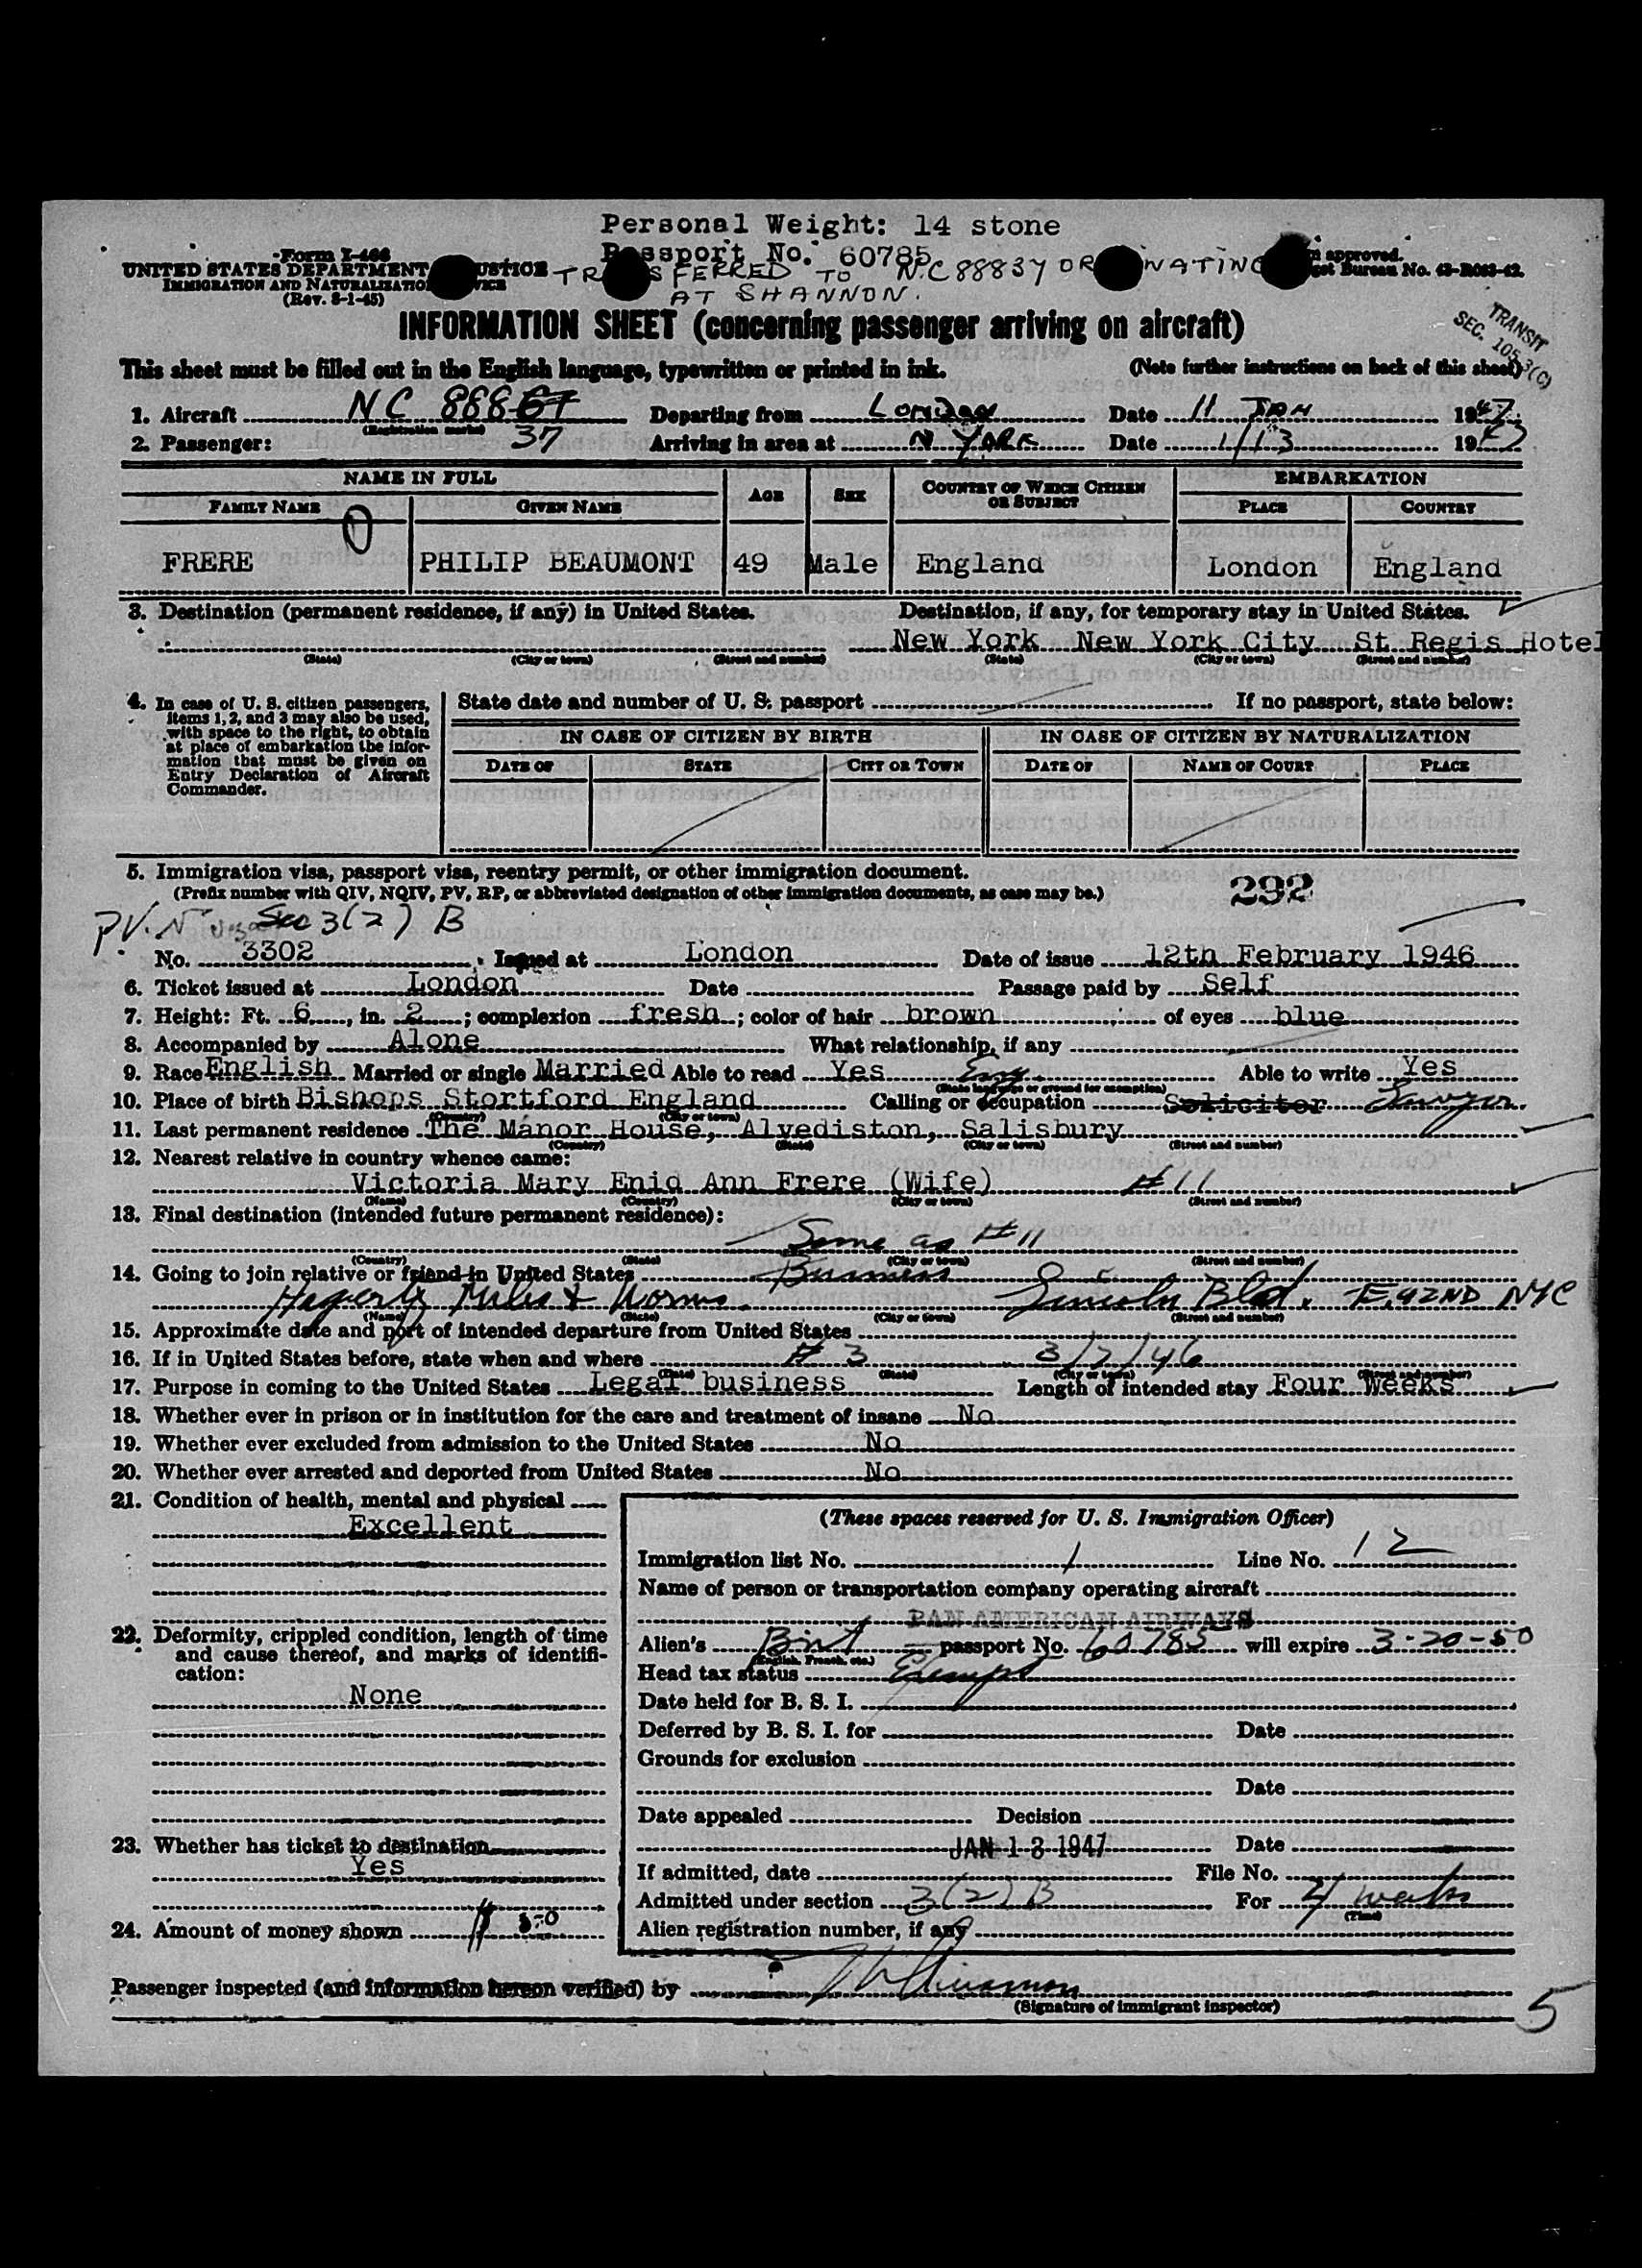 Personal Weight: 14 stone
Passport No. 60785
Form I-466
UNITED STATES DEPARTMENT JUSTICE
IMMIGRATION AND NATURALIZATION SERVICE
(Rev. 8-1-45)
TRANSFERRED TO N.C 88837 ORIGINATING
AT SHANNON.
approved.
Budget Bureau No. 43-R063-42.
TRANSIT
SEC. 105.3(C)
INFORMATION SHEET (concerning passenger arriving on aircraft)
This sheet must be filled out in the English language, typewritten or printed in ink. (Note further instructions on back of this sheet)
1. Aircraft NC 888 Departing from London Date 11 JAN 1947
(Registration marks)
37
2. Passenger: Arriving in area at N YORK Date 1/13 1947
NAME IN FULL AGE SEX COUNTRY OF WHICH CITIZEN OR SUBJECT EMBARKATION
FAMILY NAME GIVEN NAME PLACE COUNTRY
FRERE PHILIP BEAUMONT 49 Male England London England
3. Destination (permanent residence, if any) in United States. Destination, if any, for temporary stay in United States.
New York New York City St Regis Hotel
(State) (City or town) (Street and number) (State) (City or town) (Street and number)
4. In case of U. S. citizen passengers, items 1, 2, and 3 may also be used, with space to the right, to obtain at place of embarkation the information that must be given on Entry Declaration of Aircraft Commander.
State date and number of U. S. passport If no passport, state below:
IN CASE OF CITIZEN BY BIRTH IN CASE OF CITIZEN BY NATURALIZATION
DATE OF STATE CITY OR TOWN DATE OF NAME OF COURT PLACE
5. Immigration visa, passport visa, reentry permit, or other immigration document.
(Prefix number with QIV, NQIV, PV, RP, or abbreviated designation of other immigration documents, as case may be.)
292
PV. Sec 3(2) B
No. 3302 Issued at London Date of issue 12th February 1946
6. Ticket issued at London Date Passage paid by Self
7. Height: Ft. 6, in. 2; complexion fresh; color of hair brown of eyes blue
8. Accompanied by Alone What relationship, if any
9. Race English Married or single Married Able to read Yes Eng. Able to write Yes
(State language or ground for exemption)
10. Place of birth Bishops Stortford England Calling or occupation Solicitor Lawyer.
(Country) (City or town)
11. Last permanent residence The Manor House, Alvediston, Salisbury
(Country) (State) (City or town) (Street and number)
12. Nearest relative in country whence came:
Victoria Mary Enid Ann Frere (Wife) #11
(Name) (Country) (City or town) (Street and number)
13. Final destination (intended future permanent residence):
Same as #11
(Country) (State) (City or town) (Street and number)
14. Going to join relative or friend in United States Business
Lincoln Bld. E. 42ND NYC
(Name) (State) (City or town) (Street and number)
15. Approximate date and port of intended departure from United States
16. If in United States before, state when and where # 3 3/7/46
(Date) (State) (City or town) (Street and number)
17. Purpose in coming to the United States Legal business Length of intended stay Four Weeks
18. Whether ever in prison or in institution for the care and treatment of insane No
19. Whether ever excluded from admission to the United States No
20. Whether ever arrested and deported from United States No
21. Condition of health, mental and physical
Excellent
22. Deformity, crippled condition, length of time and cause thereof, and marks of identification:
None
23. Whether has ticket to destination
Yes
24. Amount of money shown
(These spaces reserved for U. S. Immigration Officer)
Immigration list No. 1 Line No. 12
Name of person or transportation company operating aircraft
PAN AMERICAN AIRWAYS
Alien's Brit passport No. 60785 will expire 3-20-50
(English, French, etc.)
Head tax status Exempt
Date held for B. S. I.
Deferred by B. S. I. for Date
Grounds for exclusion
Date
Date appealed Decision
JAN 13 1947 Date
If admitted, date File No.
Admitted under section 3(2)B For 4 weeks
(Time)
Alien registration number, if any
Passenger inspected (and information hereon verified) by
(Signature of immigrant inspector)
5